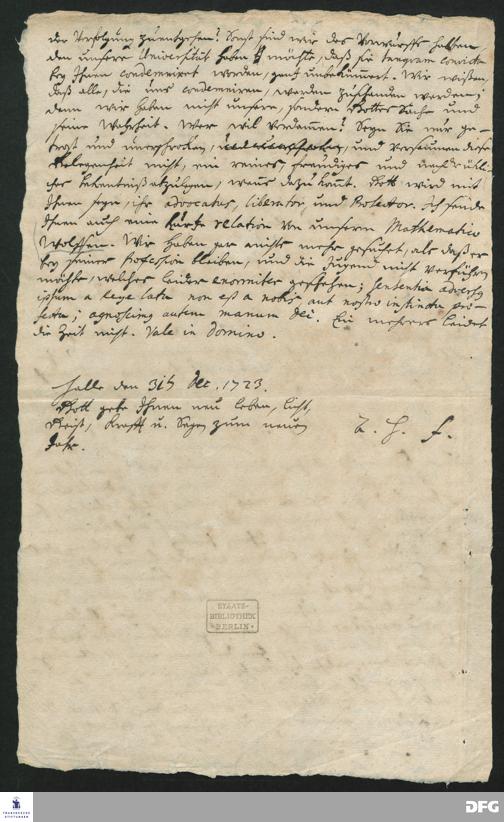 der Verfolgung zuentgehen? Sonst sind wir des Vorwurffs halben,
den unsere Universität haben möchte, daß sie tanquam convicta
bey Ihnen condemniret worden, gantz unbekümmert. Wir wißen,
daß alle, die uns condemniren, werden zuschanden werden;
denn wir haben nicht unsere, sondern Gottes Sache und
seine Wahrheit. Wer wil verdammen? Seyn Sie nur ge-
trost und unerschrocken, und versäumen diese
Gelegenheit nicht, ein reines, freudiges und
ches bekentniß abzulegen, wenns dazu kömt. Gott wird mit
Ihnen seyn, ihr advocatus, liberator und Protector. Ich sende
Ihnen auch eine kurtze relation von unserm Mathematico
Wolffen. Wir haben gar nichts mehr gesuchet, als daß er
bey seiner Profession bleiben, und die Jugend nicht verführen
möchte, welches leider enormiter geschehen; sententia adversus
ipsum a Rege lata non est a nobis aut nostro instinctu pro-
fecta; agnoscimus autem manum Dei. Ein mehrers leidet
die Zeit nicht. Vale in Domino.
Halle den 31 Dec. 1723.
Gott gebe Ihnen neu leben, licht,
Geist, Krafft u. Segen zum neuen
Jahr.
STAATS-
BIBLIOTHEK
BERLIN
FRANCKESCHE
STIFTUNGEN
DFG